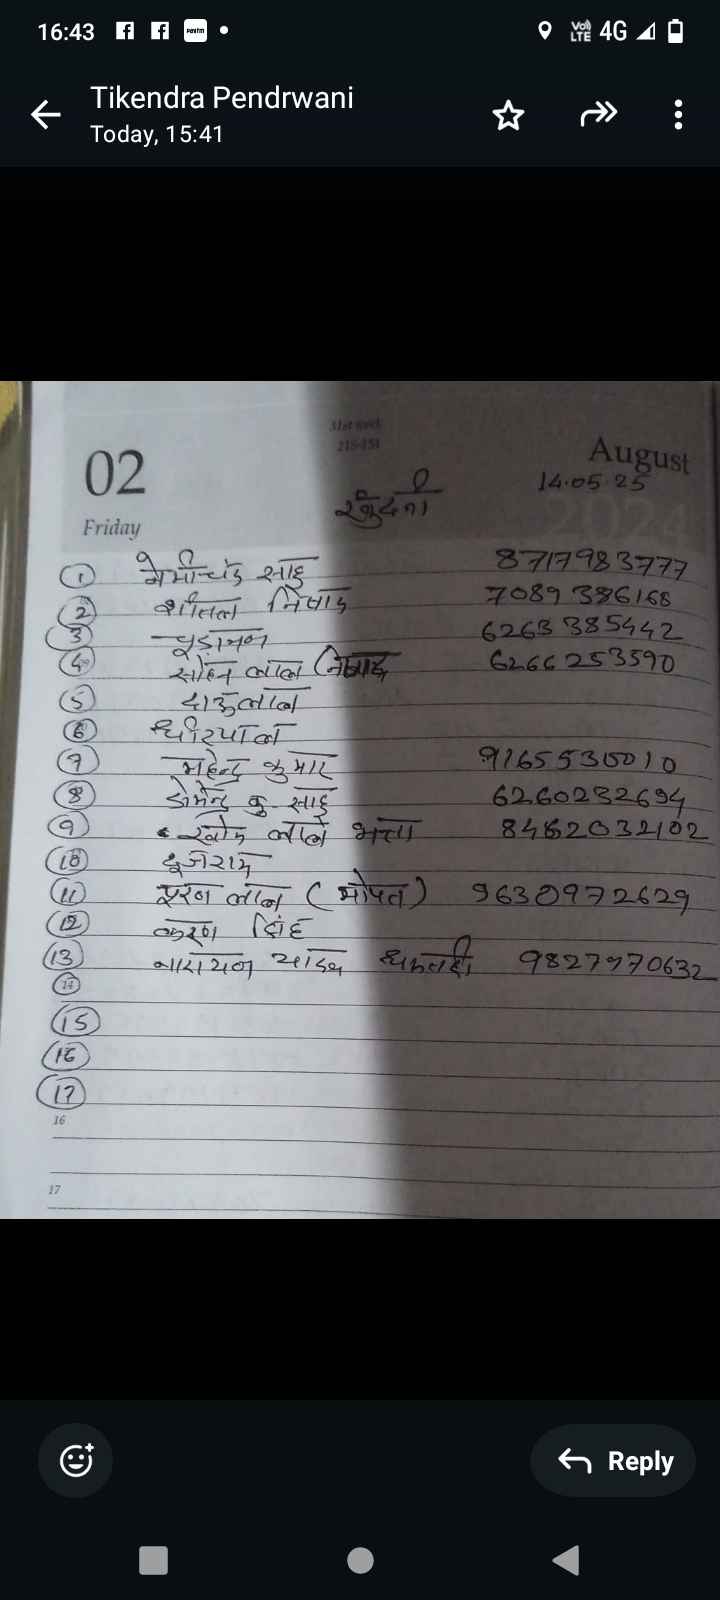 16:43 VoLTE 4G
Tikendra Pendrwani
Today, 15:41
31st week
215-151
02 August
14.05.25
2024
Friday खुंदनी
① नेमीचंद साहु 8717983777
② शीतल निषाद 7089386168
③ चूड़ामन 6263 385442
④ सोहन लाल निषाद 6266253590
⑤ दाऊलाल
⑥ धीरपाल
⑦ महेन्द्र कुमार 9165535010
⑧ डोमेन्द्र कु. साहु 6260232694
⑨ खोम लाल 8462032102
⑩ दूजेराम
⑪ पूरण लाल (भोपत) 9630972629
⑫ करण सिंह
⑬ नारायण यादव धमतरी 9827970632
⑭
⑮
⑯
⑰
16
17
Reply